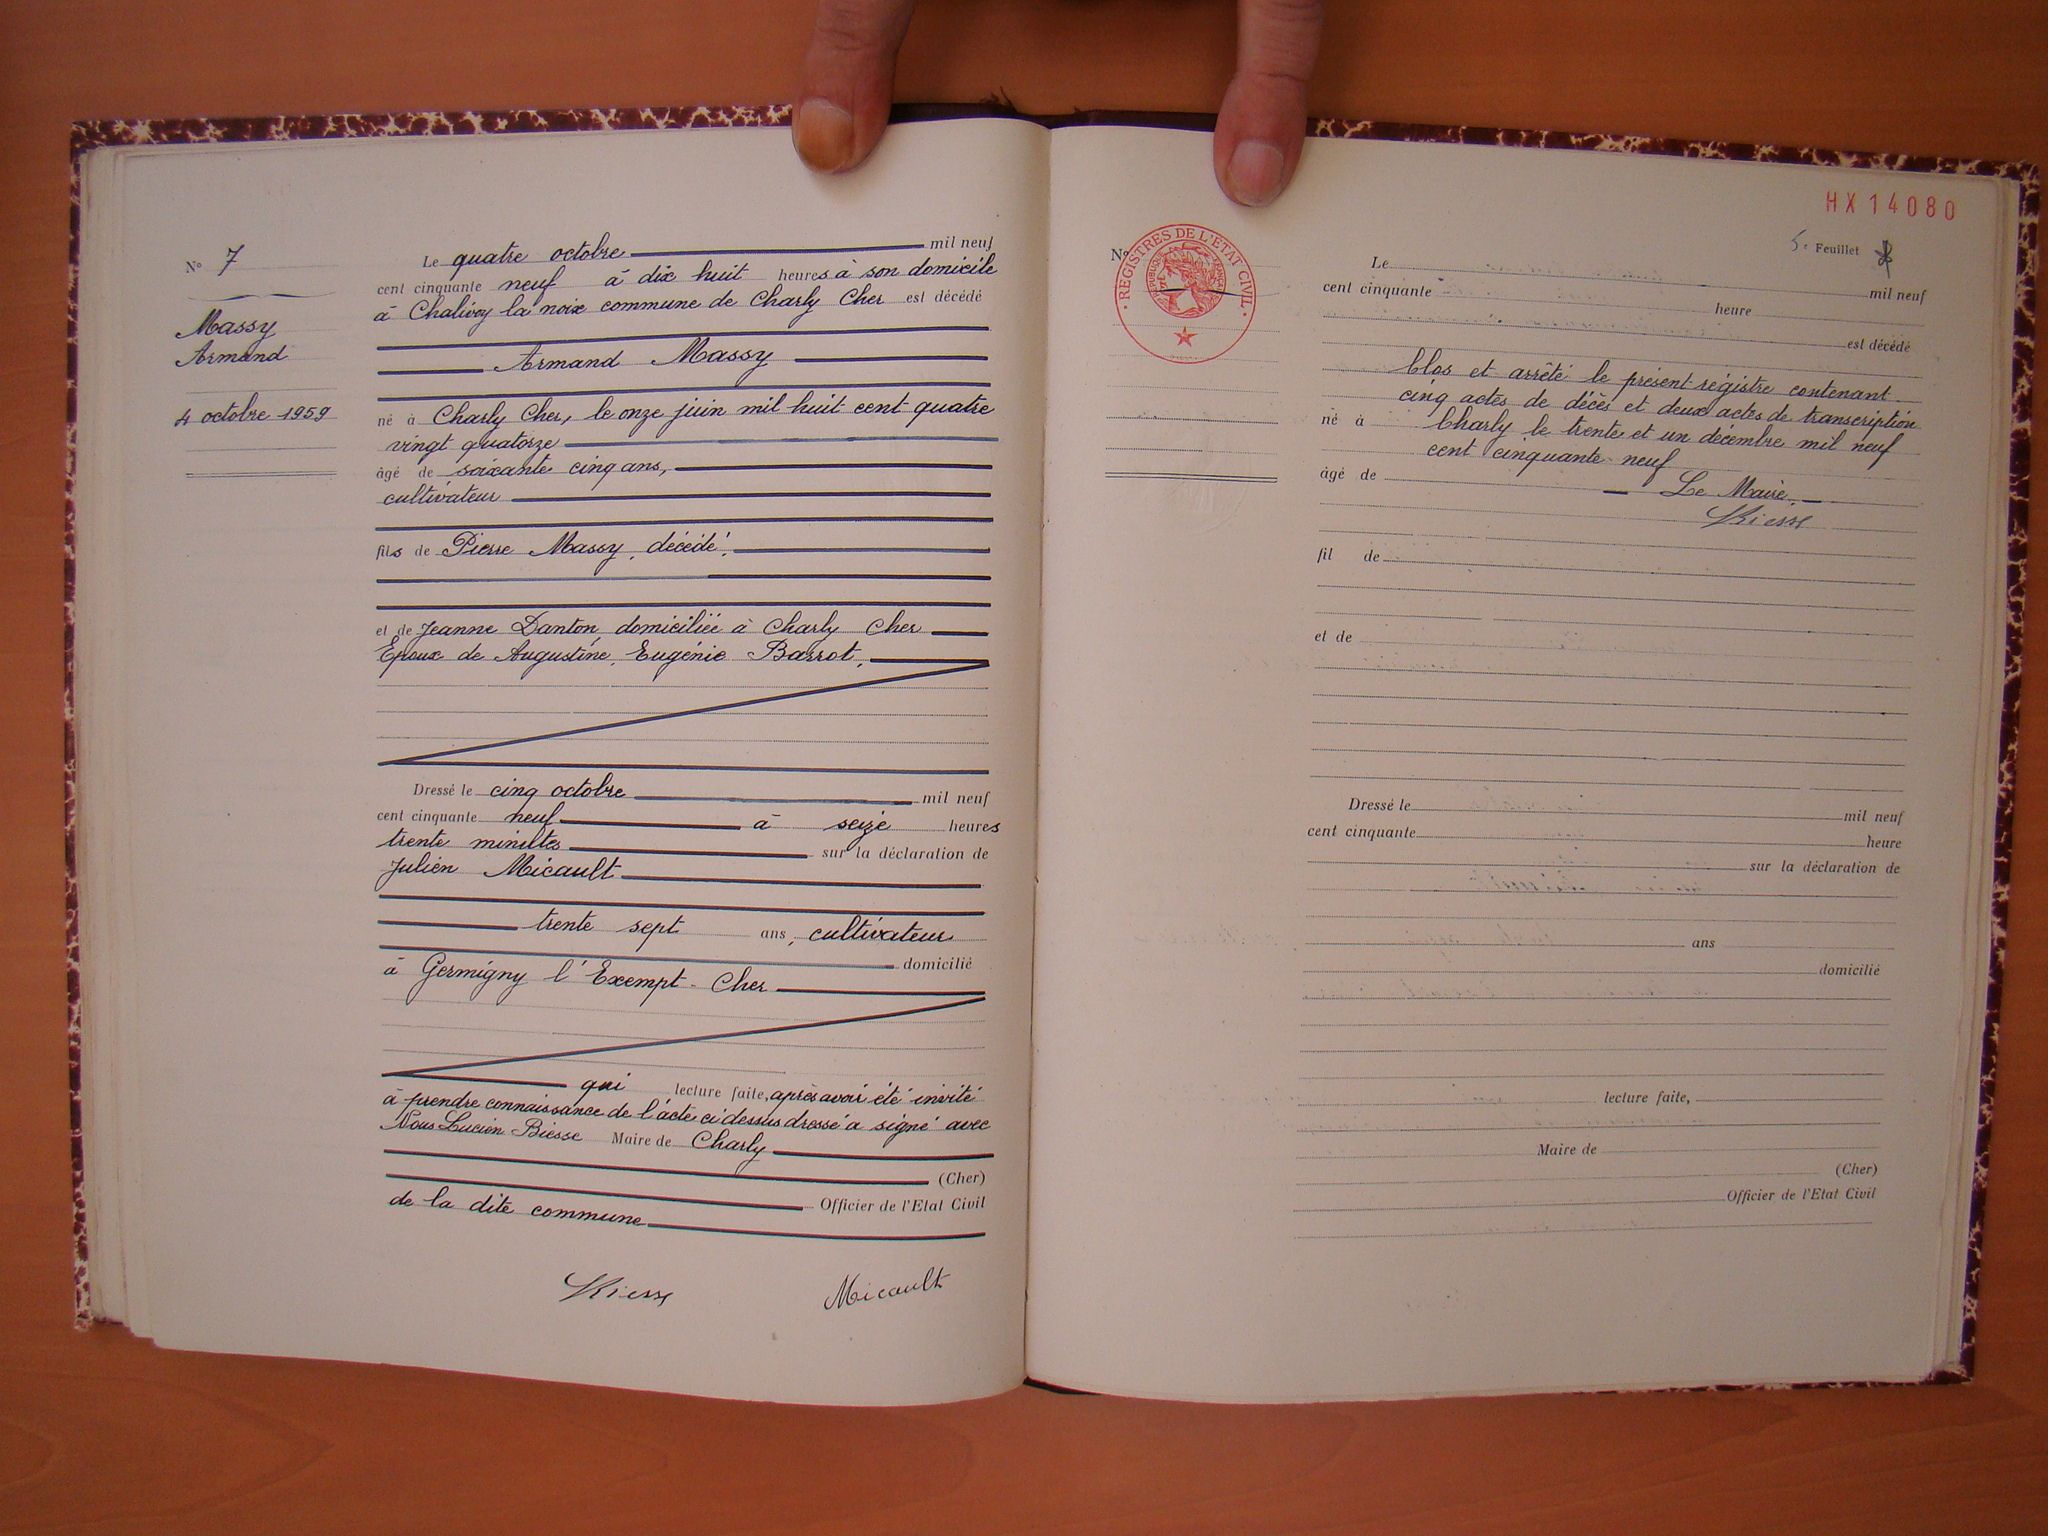 N° 7
Massy
Armand
4 octobre 1959
Le quatre octobre mil neuf
cent cinquante neuf à dix huit heures à son domicile
à Chalivoy la noix commune de Charly Cher est décédé
Armand Massy
né à Charly Cher, le onze juin mil huit cent quatre
vingt quatorze
âgé de soixante cinq ans,
cultivateur
fils de Pierre Massy, décédé,
et de Jeanne Danton, domiciliée à Charly Cher
Epoux de Augustine, Eugénie Barrot,
Dressé le cinq octobre mil neuf
cent cinquante neuf à seize heures
trente minutes sur la déclaration de
Julien Micault
trente sept ans, cultivateur
domicilié
à Germigny l'Exempt - Cher
qui lecture faite, après avoir été invité
à prendre connaissance de l'acte ci dessus dressé a signé avec
Nous Lucien Biesse Maire de Charly
(Cher)
Officier de l'Etat Civil
de la dite commune
Biesse Micault
HX 14080
5e Feuillet
N°
REGISTRES DE L'ÉTAT CIVIL
RÉPUBLIQUE FRANÇAISE
Le mil neuf
cent cinquante heure
est décédé
Clos et arrêté le présent registre contenant
cinq actes de décès et deux actes de transcription
né à Charly le trente et un décembre mil neuf
cent cinquante neuf
âgé de Le Maire,
Biesse
fil de
et de
Dressé le mil neuf
cent cinquante heure
sur la déclaration de
ans
domicilié
lecture faite,
Maire de
(Cher)
Officier de l'Etat Civil